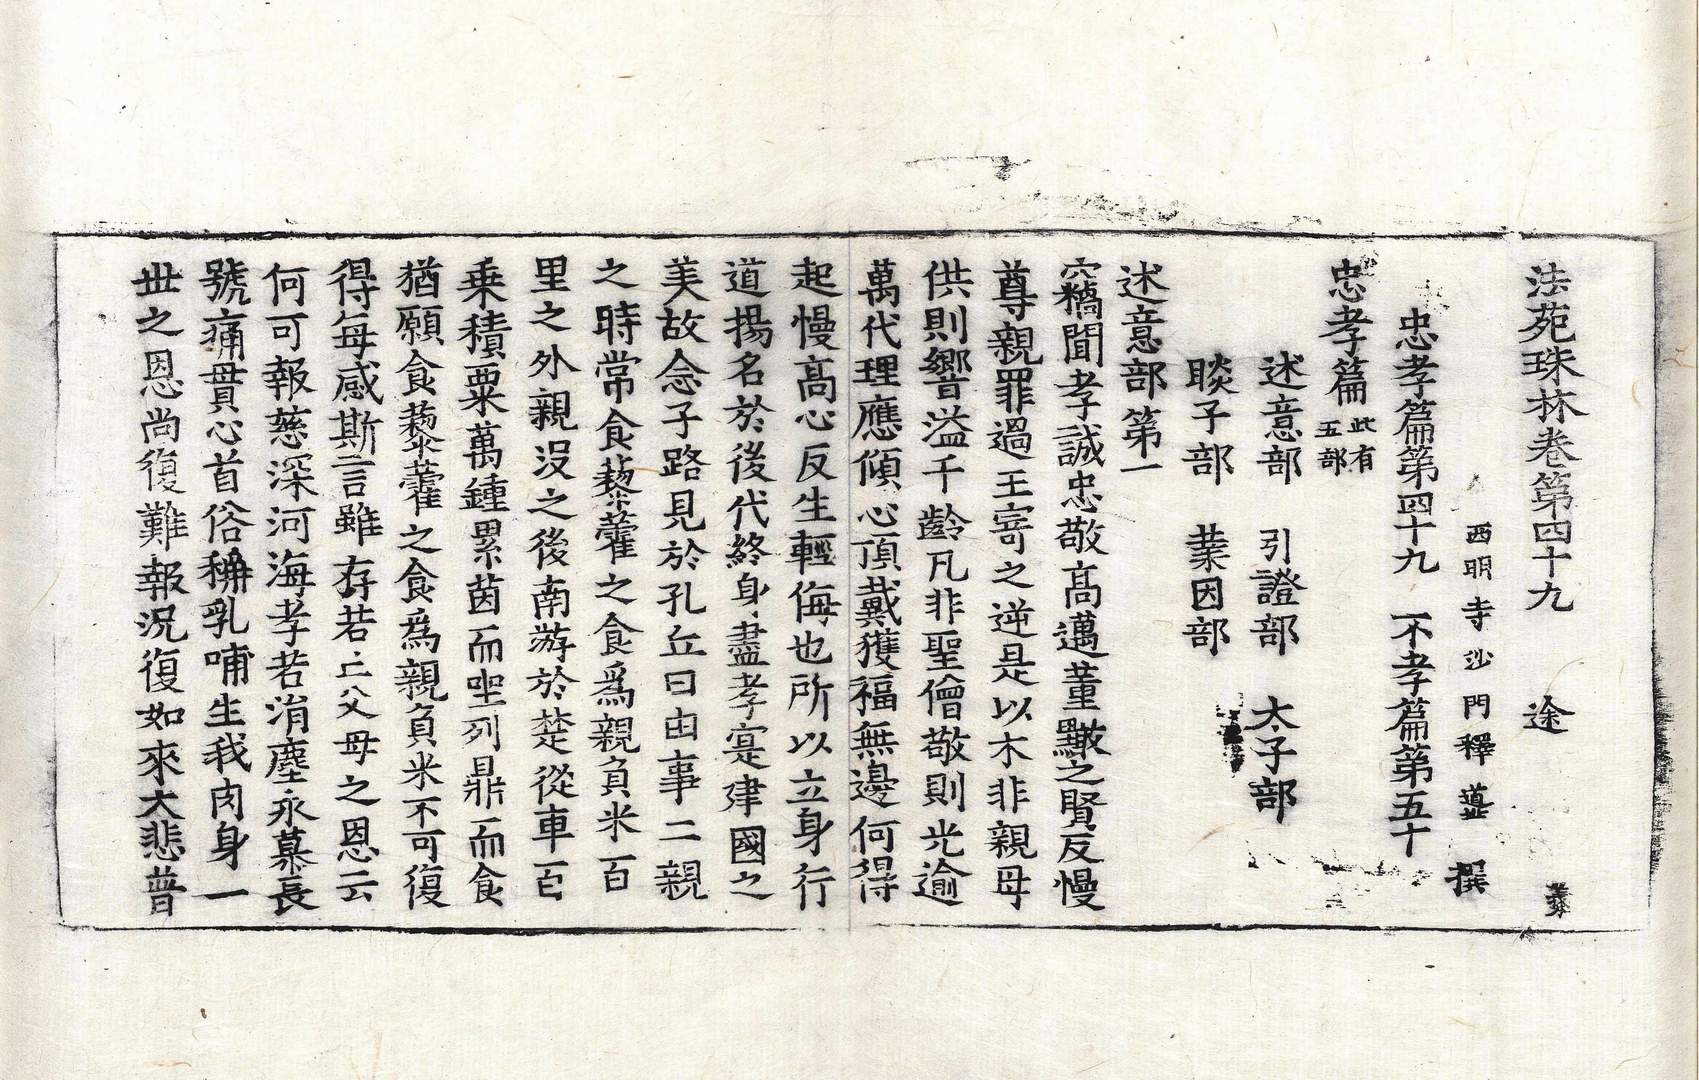 法苑珠林卷第四十九 途
西明寺沙門釋 撰
忠孝篇第四十九 不孝篇第五十
忠孝篇此有五部
述意部 引證部 太子部
睒子部 業因部
述意部第一
竊聞孝誠忠敬高邁董黯之賢反慢
尊親罪過王寄之逆是以木非親母
供則響溢千齡凡非聖僧敬則光逾
萬代理應傾心頂戴獲福無邊何得
起慢高心反生輕侮也所以立身行
道揚名於後代終身盡孝寔建國之
美故念子路見於孔丘曰由事二親
之時常食藜藿之食爲親負米百
里之外親沒之後南游於楚從車百
乗積粟萬鍾累茵而坐列鼎而食
猶願食藜藿之食爲親負米不可復
得每感斯言雖存若亡父母之恩云
何可報慈深河海孝若涓塵永慕長
號痛貫心首俗稱乳哺生我肉身一
世之恩尚復難報況復如來大悲普